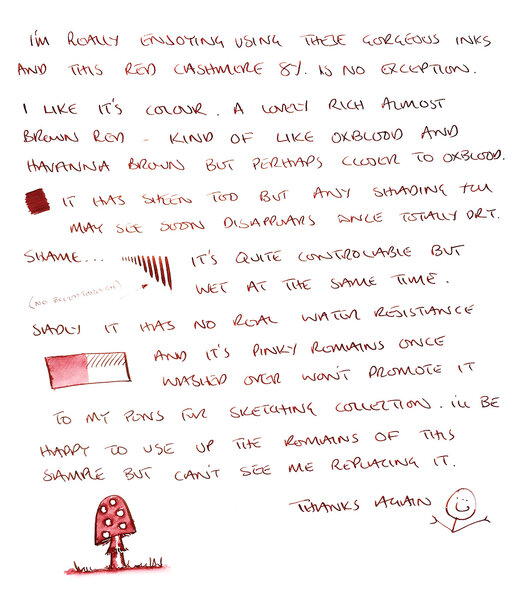 I'M REALLY ENJOYING USING THESE GORGEOUS INKS
AND THIS RED CASHMERE 8%. IS NO EXCEPTION.
I LIKE IT'S COLOUR. A LOVELY RICH ALMOST
BROWN RED - KIND OF LIKE OXBLOOD AND
HAVANNA BROWN BUT PERHAPS CLOSER TO OXBLOOD.
IT HAS SHEEN TOO BUT ANY SHADING YOU
MAY SEE SOON DISAPPEARS ONCE TOTALLY DRY.
SHAME... IT'S QUITE CONTROLLABLE BUT
(NO BLEEDTHROUGH) WET AT THE SAME TIME.
SADLY IT HAS NO REAL WATER RESISTANCE
AND IT'S PINKY REMAINS ONCE
WASHED OVER WON'T PROMOTE IT
TO MY PENS FOR SKETCHING COLLECTION. I'LL BE
HAPPY TO USE UP THE REMAINS OF THIS
SAMPLE BUT CAN'T SEE ME REPLACING IT.
THANKS AGAIN